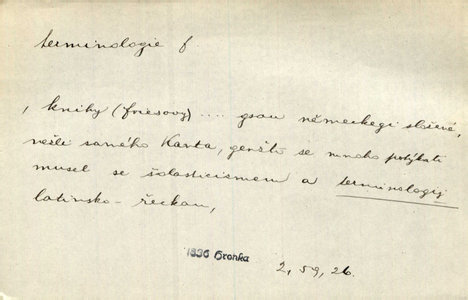 terminologie f.
, knihy (friesovy) .... gsau německegi složené,
nežli samého Kanta, genžto se mnoho potýkati
musel se šolasticismem a terminologij
latinsko-řeckau,
1836 Hronka
2, 59, 26.